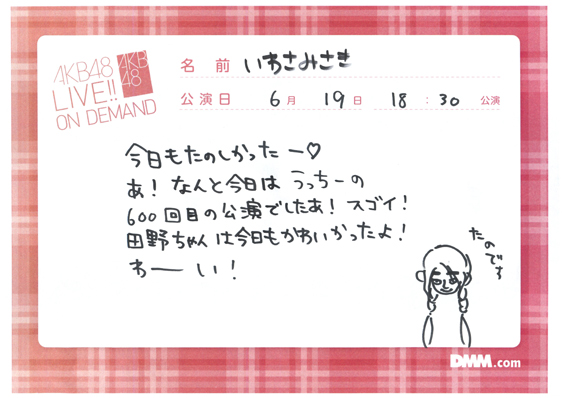 AKB48
LIVE!!
ON DEMAND
AKB
48
名前 いわさみさき
公演日 6月 19日 18:30 公演
今日もたのしかったー♡
あ! なんと今日は うっちーの
600回目の公演でしたあ! スゴイ!
田野ちゃんは今日もかわいかったよ!
わーい!
たのです
DMM.com